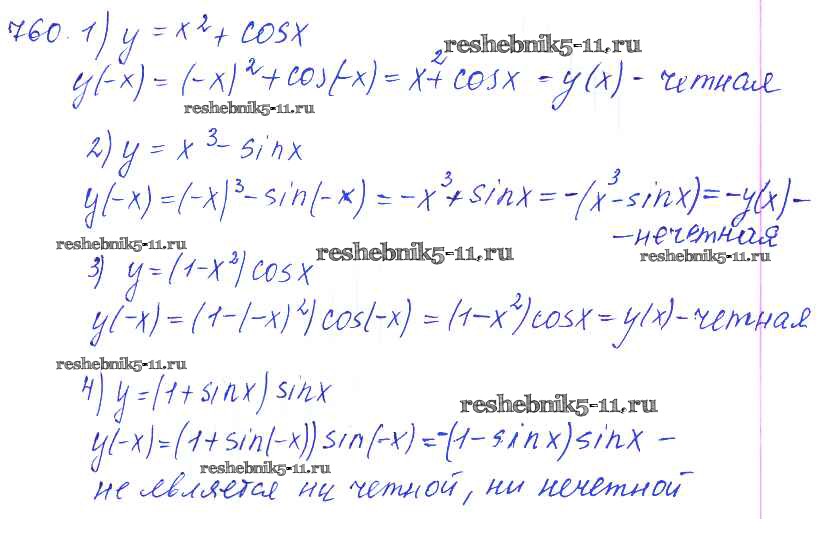 760. 1) y = x² + cosx
reshebnik5-11.ru
y(-x) = (-x)² + cos(-x) = x² + cosx = y(x) - четная
reshebnik5-11.ru
2) y = x³ - sinx
y(-x) = (-x)³ - sin(-x) = -x³ + sinx = -(x³ - sinx) = -y(x) -
- нечетная
reshebnik5-11.ru
reshebnik5-11.ru
reshebnik5-11.ru
3) y = (1-x²) cosx
y(-x) = (1-(-x)²) cos(-x) = (1-x²) cosx = y(x) - четная
reshebnik5-11.ru
4) y = (1 + sinx) sinx
reshebnik5-11.ru
y(-x) = (1 + sin(-x)) sin(-x) = -(1 - sinx) sinx -
reshebnik5-11.ru
не является ни четной, ни нечетной